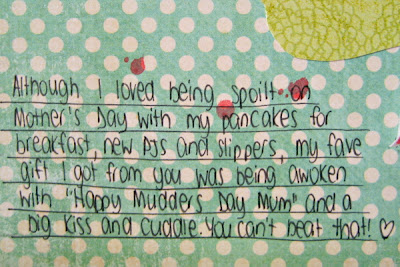 Although I loved being spoilt on
Mother's Day with my pancakes for
breakfast, new PJs and slippers, my fave
gift I got from you was being awoken
with "Happy Mudders Day Mum" and a
big kiss and cuddle. You can't beat that! ♡